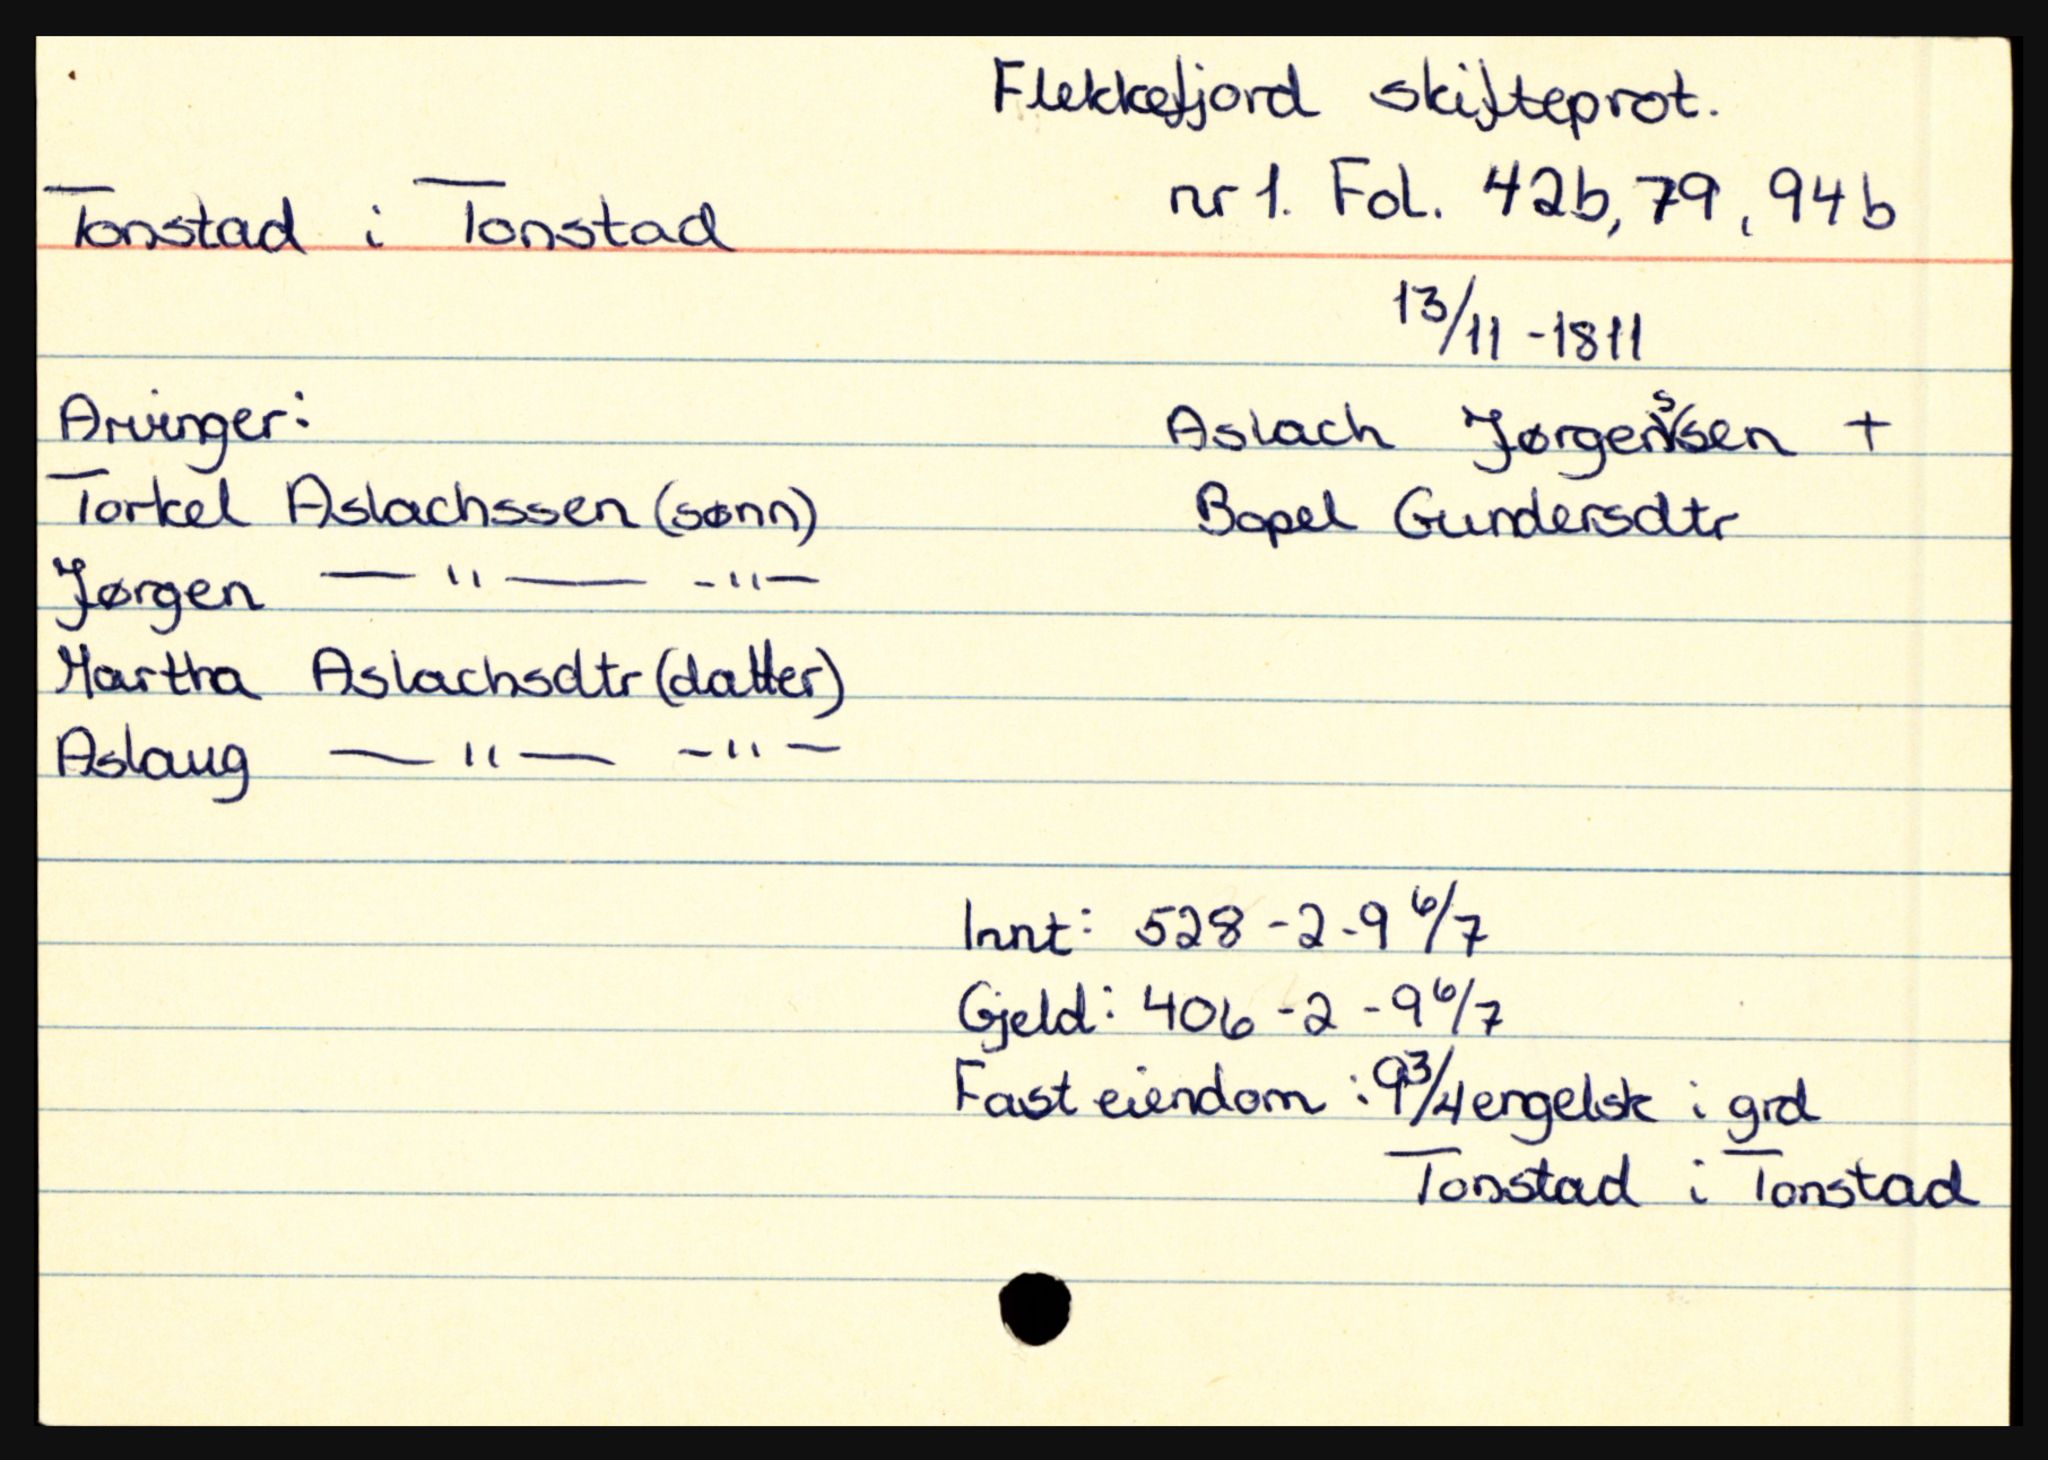 Flekkefjord skifteprot.
nr 1. Fol. 42b, 79, 94b
Tonstad i Tonstad
13/11 - 1811
Aslach Jørgenssen +
Bopel Gundersdtr
Arvinger:
Torkel Aslachssen (sønn)
Jørgen — " — - " -
Martha Aslachsdtr (datter)
Aslaug — " — - " -
Innt: 528 - 2 - 9 6/7
Gjeld: 406 - 2 - 9 6/7
Fast eiendom: 9 3/4 engelsk i grd
Tonstad i Tonstad